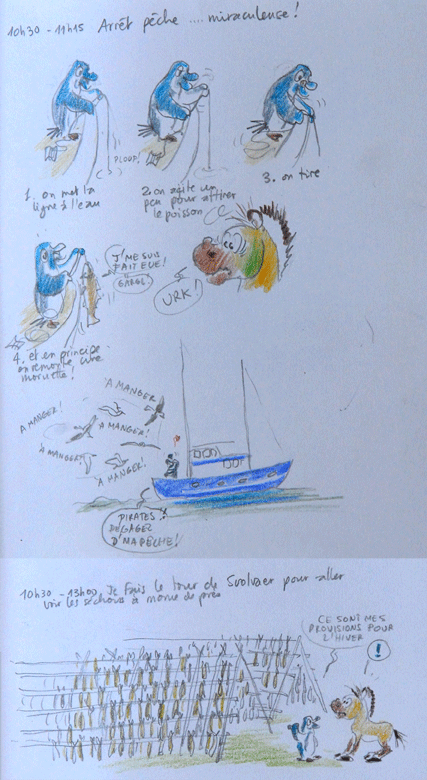 10h30 - 11h15 Arrêt pêche .... miraculeuse !
PLOUF!
1. on met la
ligne à l'eau
2. on agite un
peu pour attirer
le poisson
3. on tire
J'ME SUIS
FAIT EUE!
GARGL!
URK!
4. et en principe
on remonte une
moruette!
A MANGER!
A MANGER!
A MANGER!
A MANGER!
A MANGER!
PIRATES!
DEGAGEZ
D'MA PÊCHE!
10h30 - 13h00 Je fais le tour de Svolvaer pour aller
voir les séchoirs à morue de près
CE SONT MES
PROVISIONS POUR
L'HIVER
!